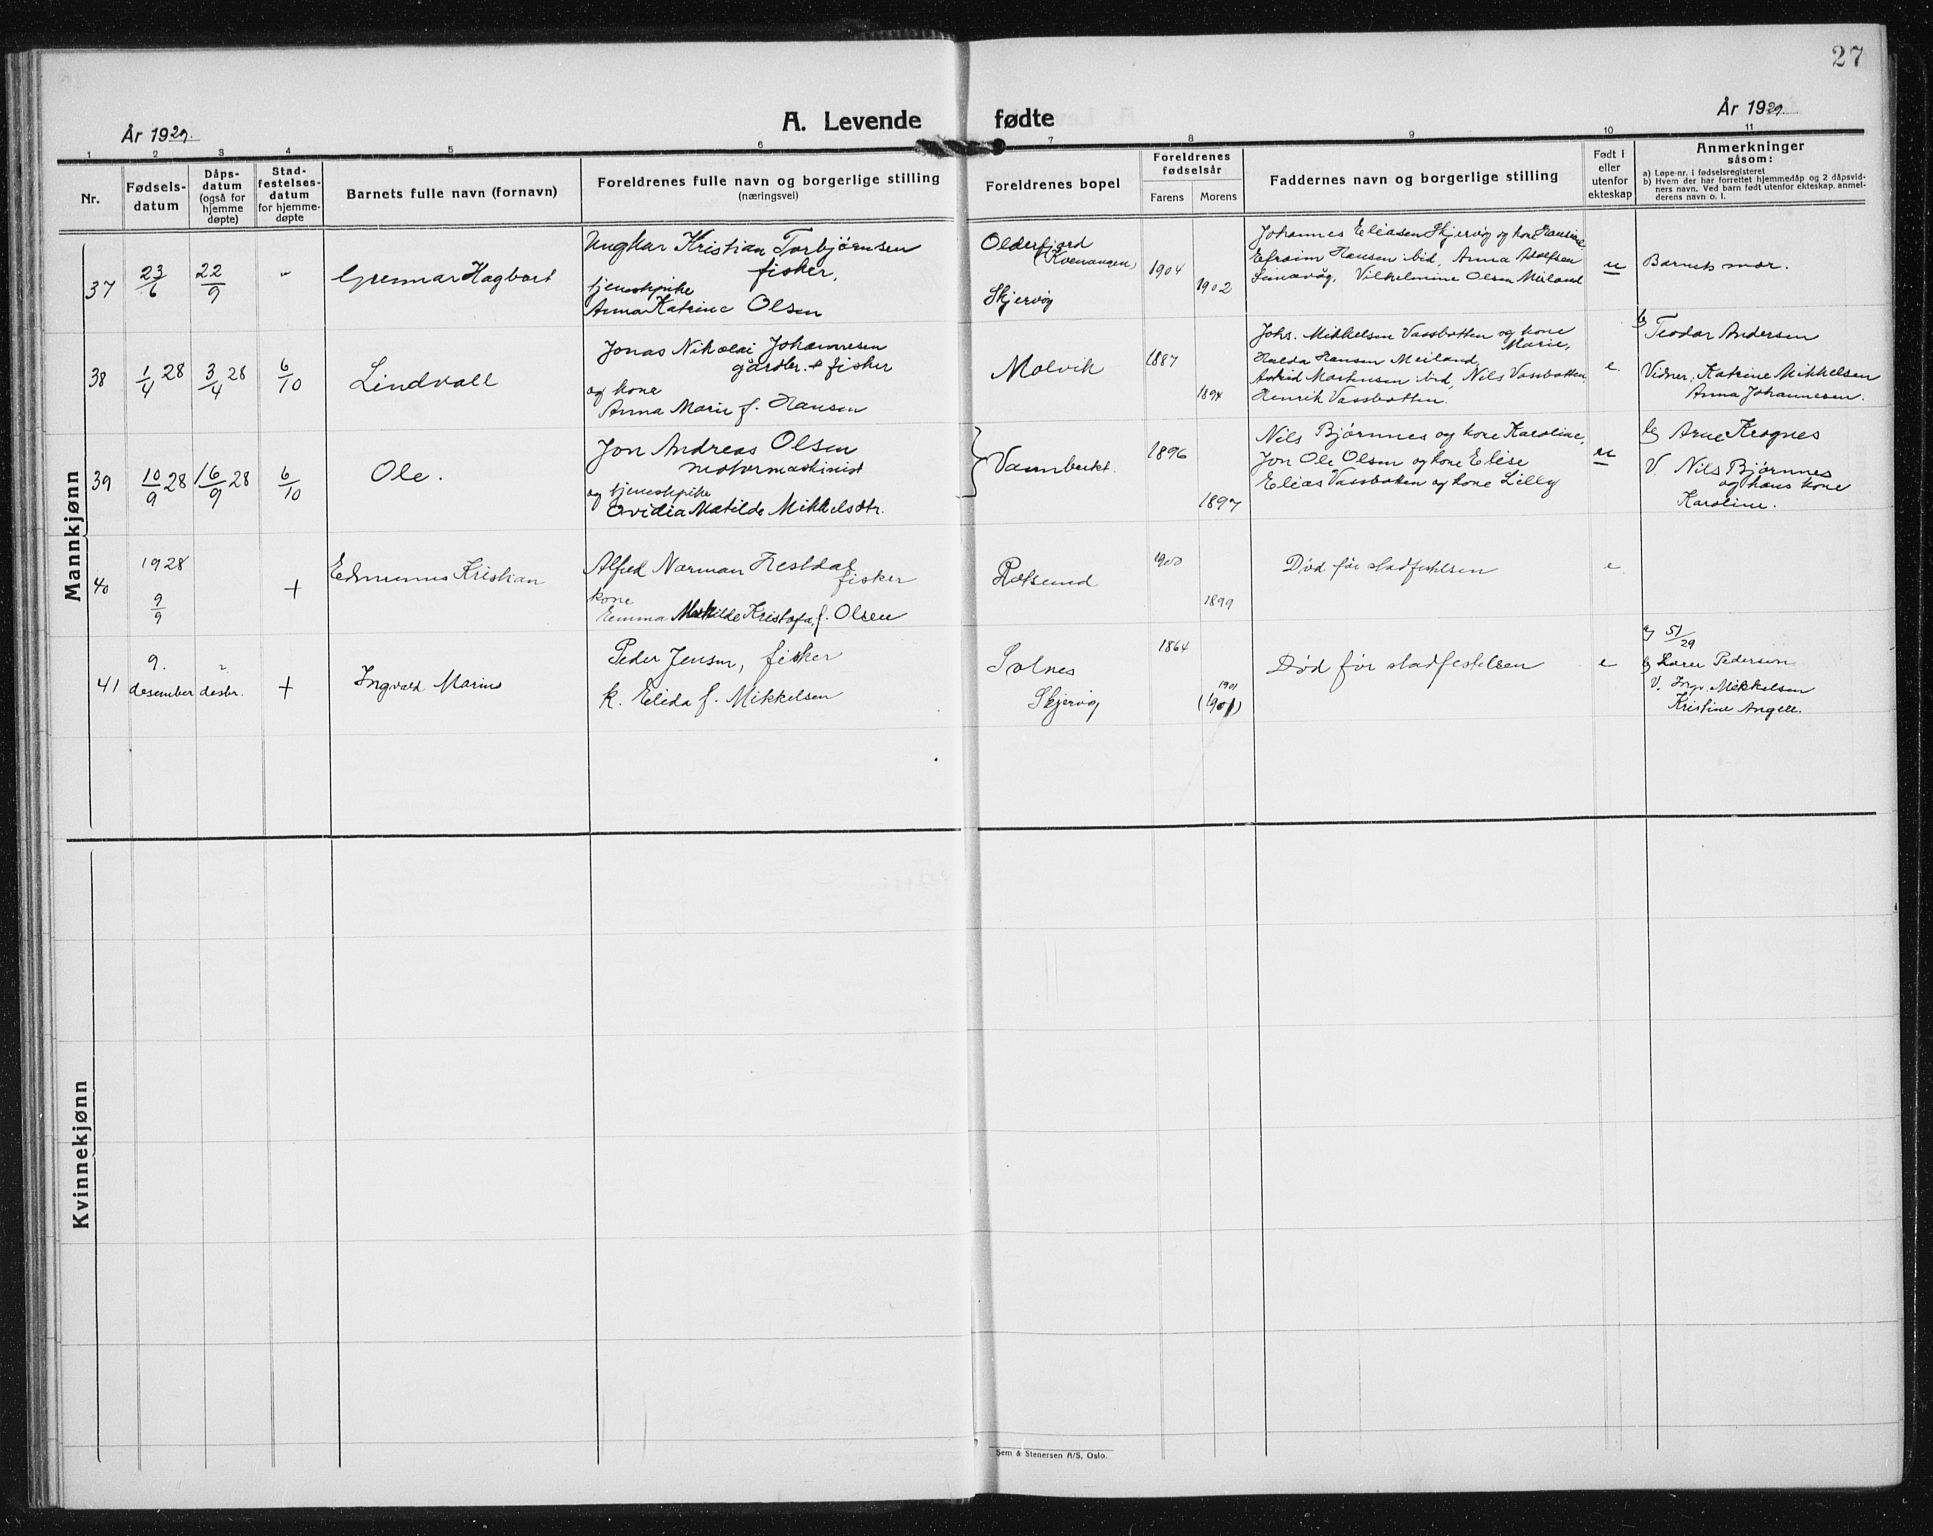 27
År 1929.
A. Levende fødte
År 1929
1 2 3 4 5 6 7 8 9 10 11
Nr.
Fødsels-
datum
Dåps-
datum
(også for
hjemme
døpte)
Stad-
festelses-
datum
for hjemme-
døpte
Barnets fulle navn (fornavn)
Foreldrenes fulle navn og borgerlige stilling
(næringsvei)
Foreldrenes bopel
Foreldrenes
fødselsår
Farens Morens
Faddernes navn og borgerlige stilling
Født i
eller
utenfor
ekteskap
Anmerkninger
såsom:
a) Løpe-nr. i fødselsregisteret
b) Hvem der har forrettet hjemmedåp og 2 dåpsvid-
ners navn. Ved barn født utenfor ekteskap, anmel-
derens navn o. l.
Mannkjønn
37
23/6
22/9
"
Hagbart
Kristian Torbjørnsen
fisker,
tjenestepike
Anna Katrine Olsen
Olderfjord
(Kvenangen)
Skjervøy
1904
1902
Johannes Eliasen Skjervøy og kone Hansine
Efraim Hansen ibid, Anna Adolfsen
Vilhelmine Olsen Meiland
u
Barnets mor.
38
1/4 28
3/4 28
6/10
Lindvall
Jonas Nikolai Johannesen
gårdbr. + fisker
og kone
Anna Marie f. Hansen
Molvik
1887
1894
Johs. Mikkelsen Vassbotten og kone
Marie,
Halda Hansen Meiland,
Astrid Mortensen ibid, Nils Vassbotten
Henrik Vassbotten.
e.
b) Teodor Andersen
Vidner: Katrine Mikkelsen
Anna Johannesen.
39
10/9 28
16/9 28
6/10
Ole.
Jon Andreas Olsen
motormaskinist
og tjenestepike
Ovidia Matilde Mikkelsdtr.
Vannbukt.
1896
1897
Nils Bjørnnes og kone Karoline,
Jon Ole Olsen og kone Elise
Elias Vassbotten og kone Lilly
u
b) Arne Krognes
V. Nils Bjørnnes
og hans kone
Karoline.
40
1928
9/9
+
Edmunus Kristian
Alfred Norman Hestdal
fisker
kone
Emma Matilde Kristofa, f. Olsen
Rotsund
1900
1899
Død før stadfestelsen
e.
41
9.
desember
"
desbr.
+
Ingvald Marius
Peder Jensen, fisker
k. Elida f. Mikkelsen
Solnes
Skjervøy
1864
1901
(1901)
Død før stadfestelsen
e
a) 51/29
b) Lorer Pedersen
V. Ingv. Mikkelsen
Kristine Angell.
Kvinnekjønn
Sem & Stenersen A/S, Oslo.